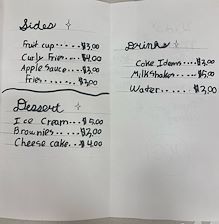 Sides
Fruit cup.....$3.00
Curly Fries....$4.00
Apple Sauce...$3.00
Fries.......$3.00
Dessert
Ice Cream....$5.00
Brownies....$3.00
Cheese cake..$4.00
Drinks
Coke Idems....$3.00
Milkshakes....$5.00
Water.....$3.00